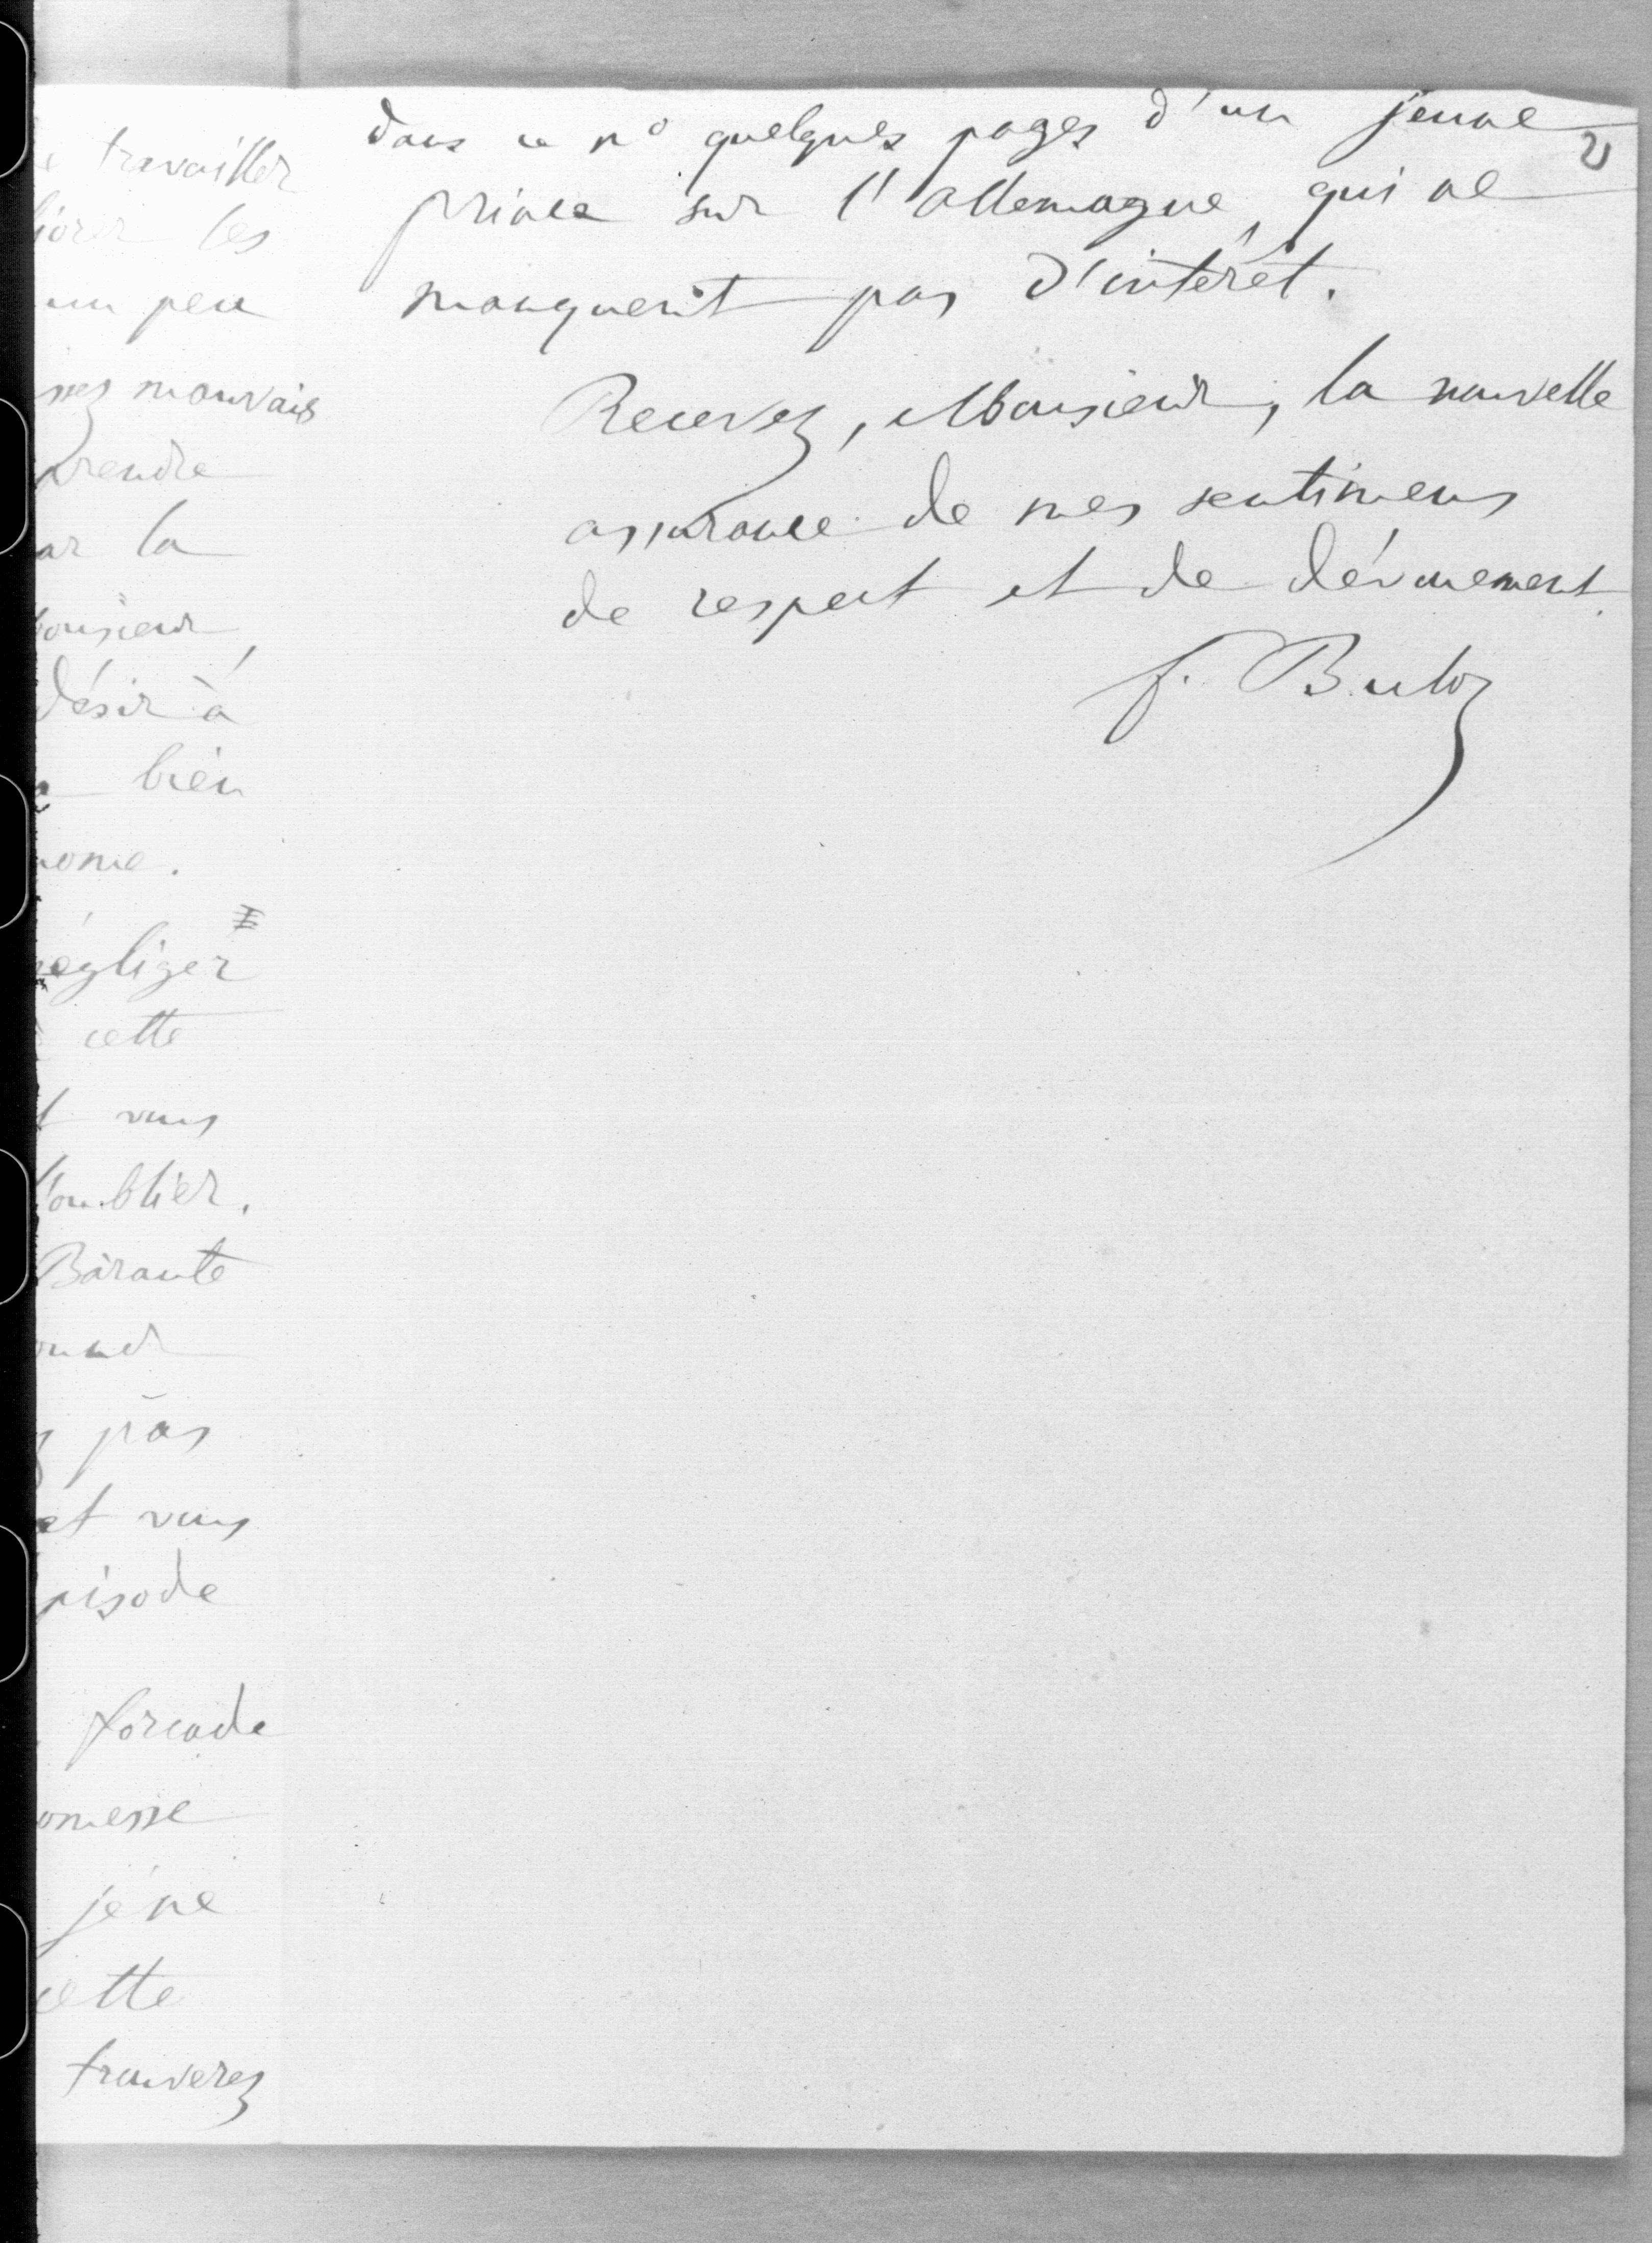 dans ce n° quelques pages d'un jeune
2
prince sur l'allemagne, qui ne
manquent pas d'intérêt.
Recevez, Monsieur, la nouvelle
assurance de mes sentimens
de respect et de dévouement.
f. Buloz
travailler
les
un peu
mauvais
prendre
la
désir à
bien
négliger
cette
vous
l'oublier.
Barante
pas
et vous
pisode
forcade
omesse
je ne
cette
trouverez